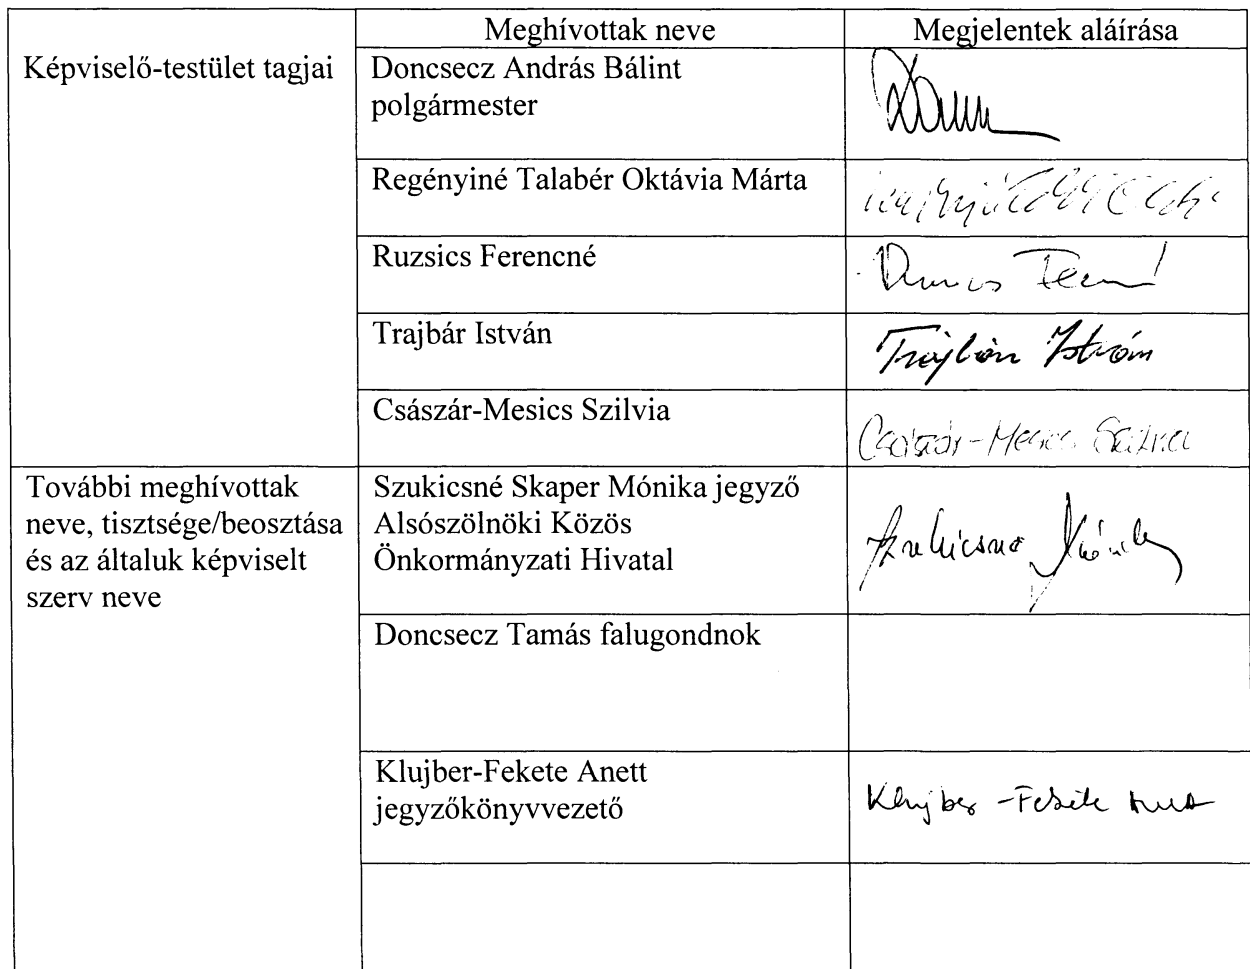 Meghívottak neve
Megjelentek aláírása
Képviselő-testület tagjai
Doncsecz András Bálint
polgármester
Regényiné Talabér Oktávia Márta
Ruzsics Ferencné
Trajbár István
Trajbár István
Császár-Mesics Szilvia
Császár-Mesics Szilvia
További meghívottak
neve, tisztsége/beosztása
és az általuk képviselt
szerv neve
Szukicsné Skaper Mónika jegyző
Alsószölnöki Közös
Önkormányzati Hivatal
Szukicsné Mónika
Doncsecz Tamás falugondnok
Klujber-Fekete Anett
jegyzőkönyvvezető
Klujber-Fekete Anett